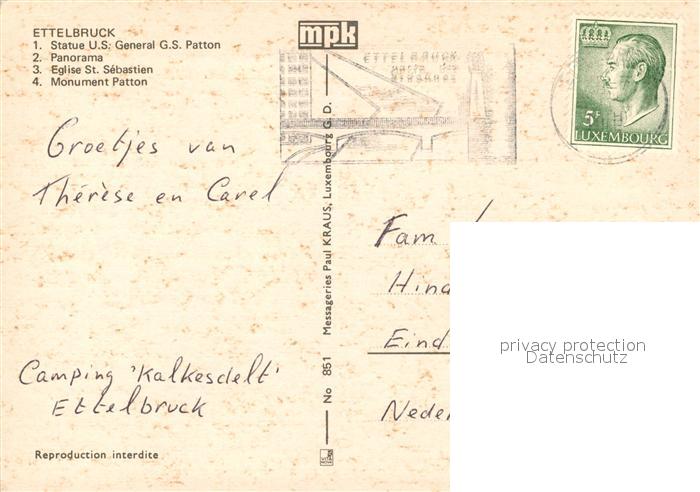 ETTELBRUCK
1. Statue U.S. General G.S. Patton
2. Panorama
3. Eglise St. Sébastien
4. Monument Patton
mpk
ETTELBRUCK
5F
LUXEMBOURG
Groetjes van
Thérèse en Carel
Camping 'Kalkesdelt'
Ettelbruck
Reproduction interdite
No 851 Messageries Paul KRAUS, Luxembourg G. D.
Fam
Hind
Eind
Neder
privacy protection
Datenschutz